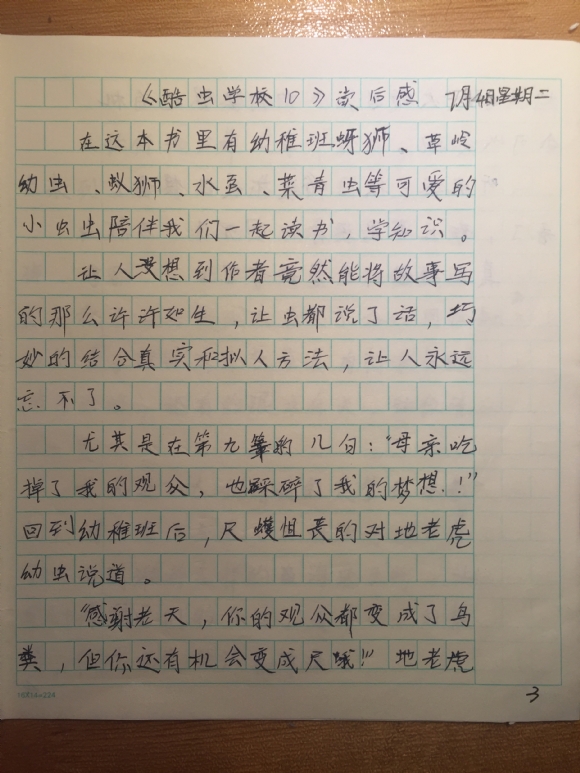 《酷虫学校10》读后感 7月4日星期二
在这本书里有幼稚班蚜狮、草蛉
幼虫、蚁狮、水虿、菜青虫等可爱的
小虫虫陪伴我们一起读书,学知识。
让人没想到作者竟然能将故事写
的那么许许如生,让虫都说了话,巧
妙的结合真实和拟人方法,让人永远
忘不了。
尤其是在第九章的几句:“母亲吃
掉了我的观众,也踩碎了我的梦想.!”
回到幼稚班后,尺蠖沮丧的对地老虎
幼虫说道。
“感谢老天,你的观众都变成了鸟
粪,但你还有机会变成尺蛾!”地老虎
3